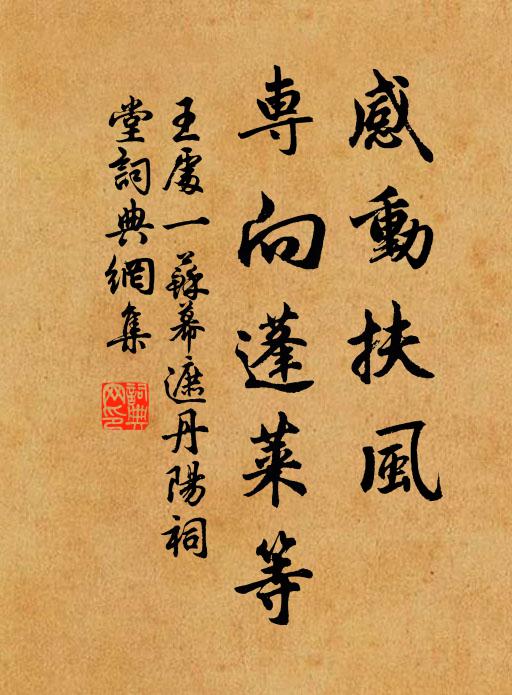 感動扶風
専向蓬萊等
王處一蘇幕遮丹陽祠
堂詞典網集
詞典
網印